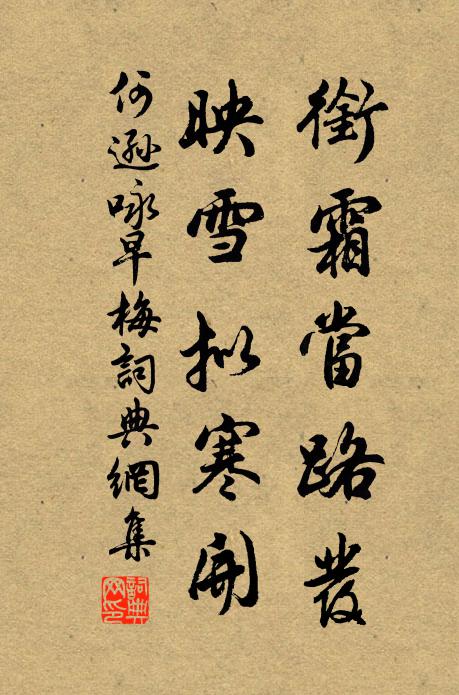 銜霜當路發
映雪擬寒開
何遜詠早梅詞典網集
詞典網印